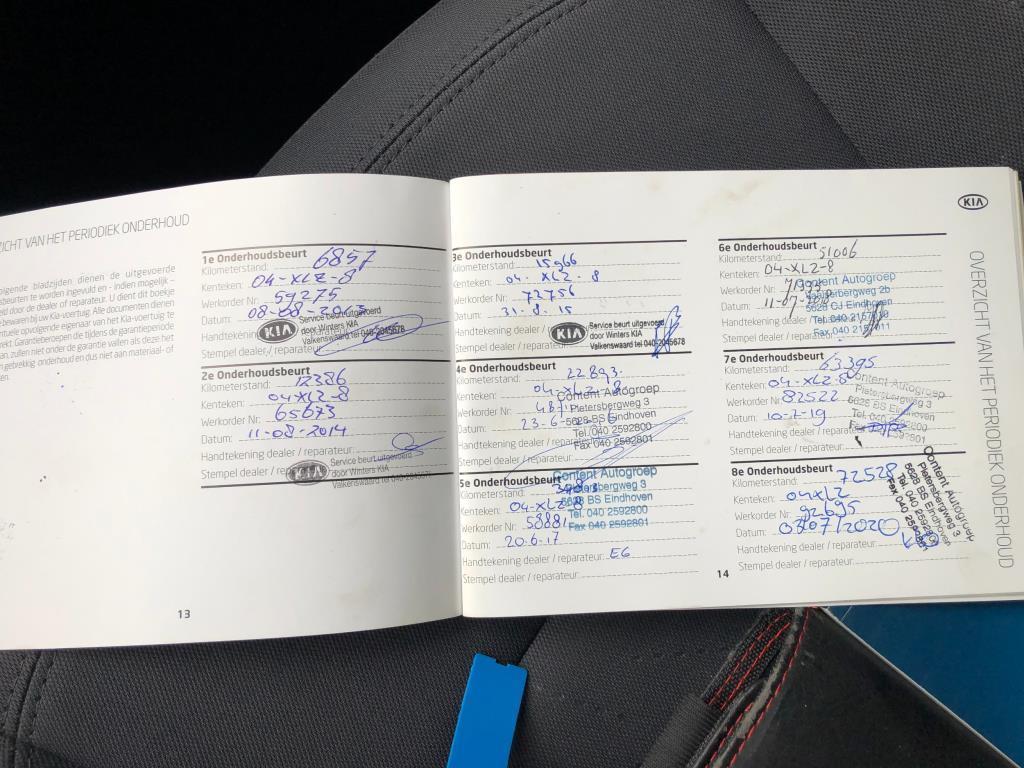 ZICHT VAN HET PERIODIEK ONDERHOUD
olgende bladzijden dienen de uitgevoerde
sbeurten te worden ingevuld en - indien mogelijk -
eld door de dealer of reparateur. U dient dit boekje
e bewaren bij uw Kia-voertuig. Alle documenten dienen
entuele opvolgende eigenaar van het Kia-voertuig te
rekt. Garantieberoepen die tijdens de garantieperiode
an, zullen niet onder de garantie vallen als deze het
n gebrekkig onderhoud en dus niet aan materiaal- of
en.
1e Onderhoudsbeurt
Kilometerstand: 6857
Kenteken: 04-XLZ-8
Werkorder Nr: 59275
Datum: 08-08-2013
Handtekening
KIA
Service beurt uitgevoerd
door Winters KIA
Valkenswaard tel 040-2045678
Stempel dealer / reparateur
2e Onderhoudsbeurt
Kilometerstand: 12386
Kenteken: 04XLZ-8
Werkorder Nr: 65673
Datum: 11-08-2014
Handtekening dealer / reparateur:
Stempel dealer /
KIA
Service beurt uitgevoerd
door Winters KIA
Valkenswaard tel 040-2045678
13
3e Onderhoudsbeurt
Kilometerstand: 15966
Kenteken: 04-XLZ-8
Werkorder Nr: 72756
Datum: 31-8-15
Handtekening dealer
KIA
Service beurt uitgevoerd
door Winters KIA
Valkenswaard tel 040-2045678
Stempel dealer / reparateur
4e Onderhoudsbeurt
Kilometerstand: 22893
Kenteken: 04-XLZ-8
Werkorder Nr:
Datum: 23-6-
Handtekening dealer
Stempel dealer / reparateur:
Content Autogroep
Pietersbergweg 3
5628 BS Eindhoven
Tel. 040 2592800
Fax 040 2592801
5e Onderhoudsbeurt
Kilometerstand:
Kenteken: 04-XLZ-8
Werkorder Nr: 58881
Datum: 20.6.17
Handtekening dealer / reparateur: E6
Stempel dealer / reparateur:
Content Autogroep
Pietersbergweg 3
5628 BS Eindhoven
Tel. 040 2592800
Fax 040 2592801
6e Onderhoudsbeurt
Kilometerstand: 51006
Kenteken: 04-XLZ-8
Werkorder Nr:
Datum: 11-07-
Handtekening dealer
Stempel dealer / reparateur:
Content Autogroep
5628 CJ Eindhoven
7e Onderhoudsbeurt
Kilometerstand: 63395
Kenteken: 04-XLZ-8
Werkorder Nr: 82522
Datum: 10-7-19
Handtekening dealer
Stempel dealer / reparateur:
Content Autogroep
Pietersbergweg 3
5628 BS Eindhoven
Tel. 040 2592800
Fax 040 2592801
8e Onderhoudsbeurt
Kilometerstand: 72528
Kenteken: 04XLZ
Werkorder Nr: 92695
Datum: 03/07/2020
Handtekening dealer / reparateur:
Stempel dealer / reparateur:
Content Autogroep
Pietersbergweg 3
5628 BS Eindhoven
Tel. 040 2592800
Fax 040 2592801
14
KIA
OVERZICHT VAN HET PERIODIEK ONDERHOUD